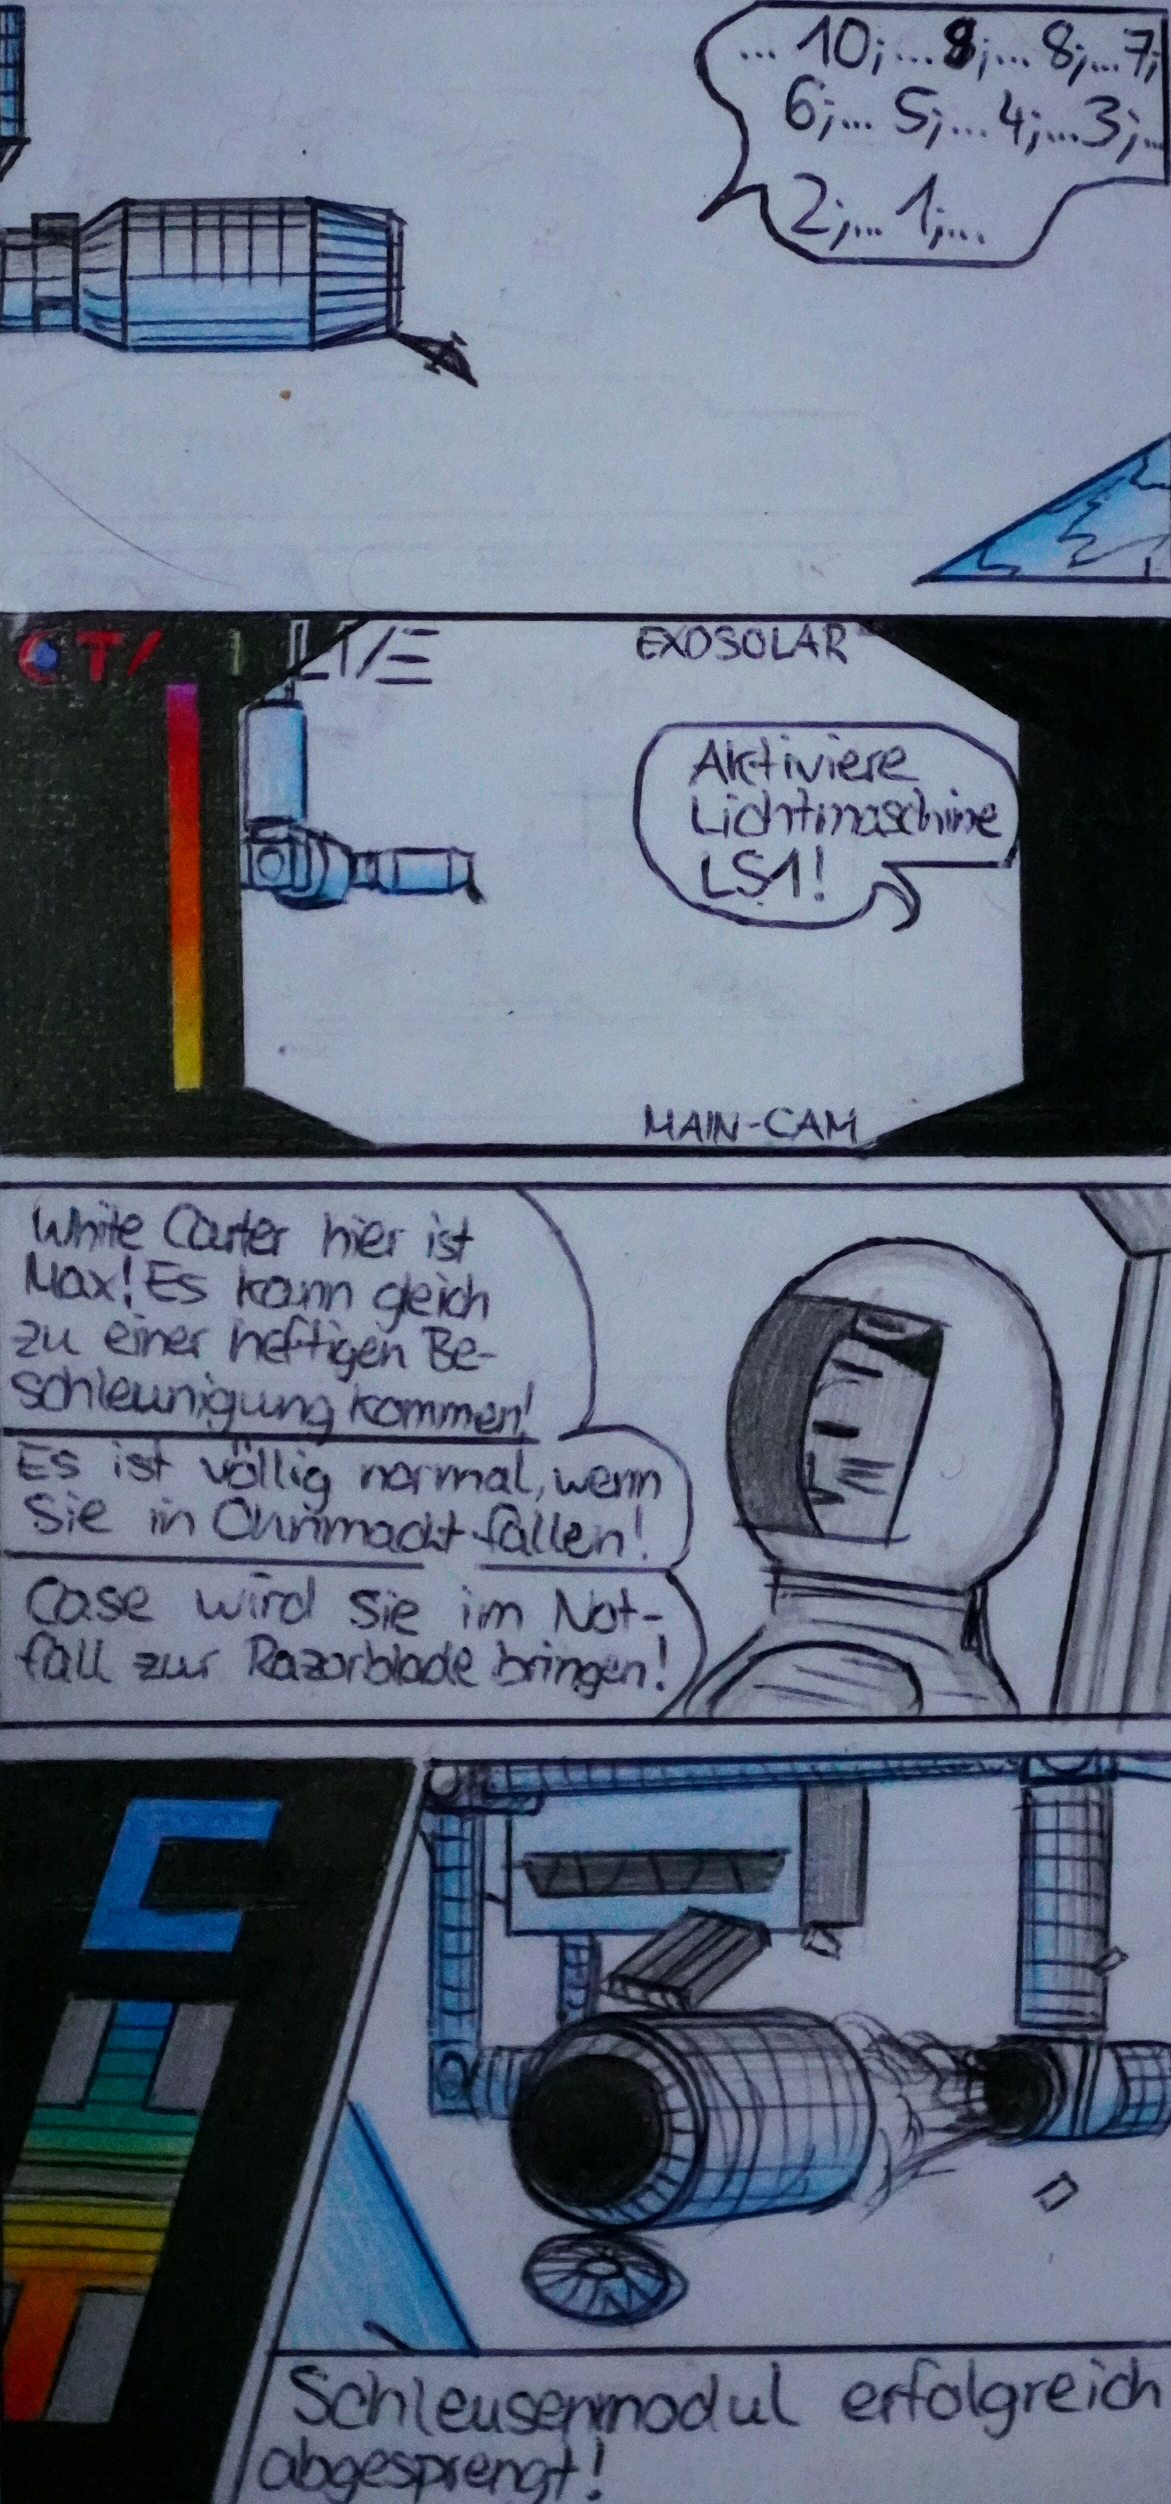 ... 10;... 8;... 8;... 7;
6;... 5;... 4;... 3;...
2;... 1;...
EXOSOLAR
Aktiviere
Lichtmaschine
LS1!
MAIN-CAM
White Carter hier ist
Max! Es kann gleich
zu einer heftigen Be-
schleunigung kommen!
Es ist völlig normal, wenn
Sie in Ohnmacht fallen!
Case wird Sie im Not-
fall zur Razorblade bringen!
Schleusenmodul erfolgreich
abgesprengt!